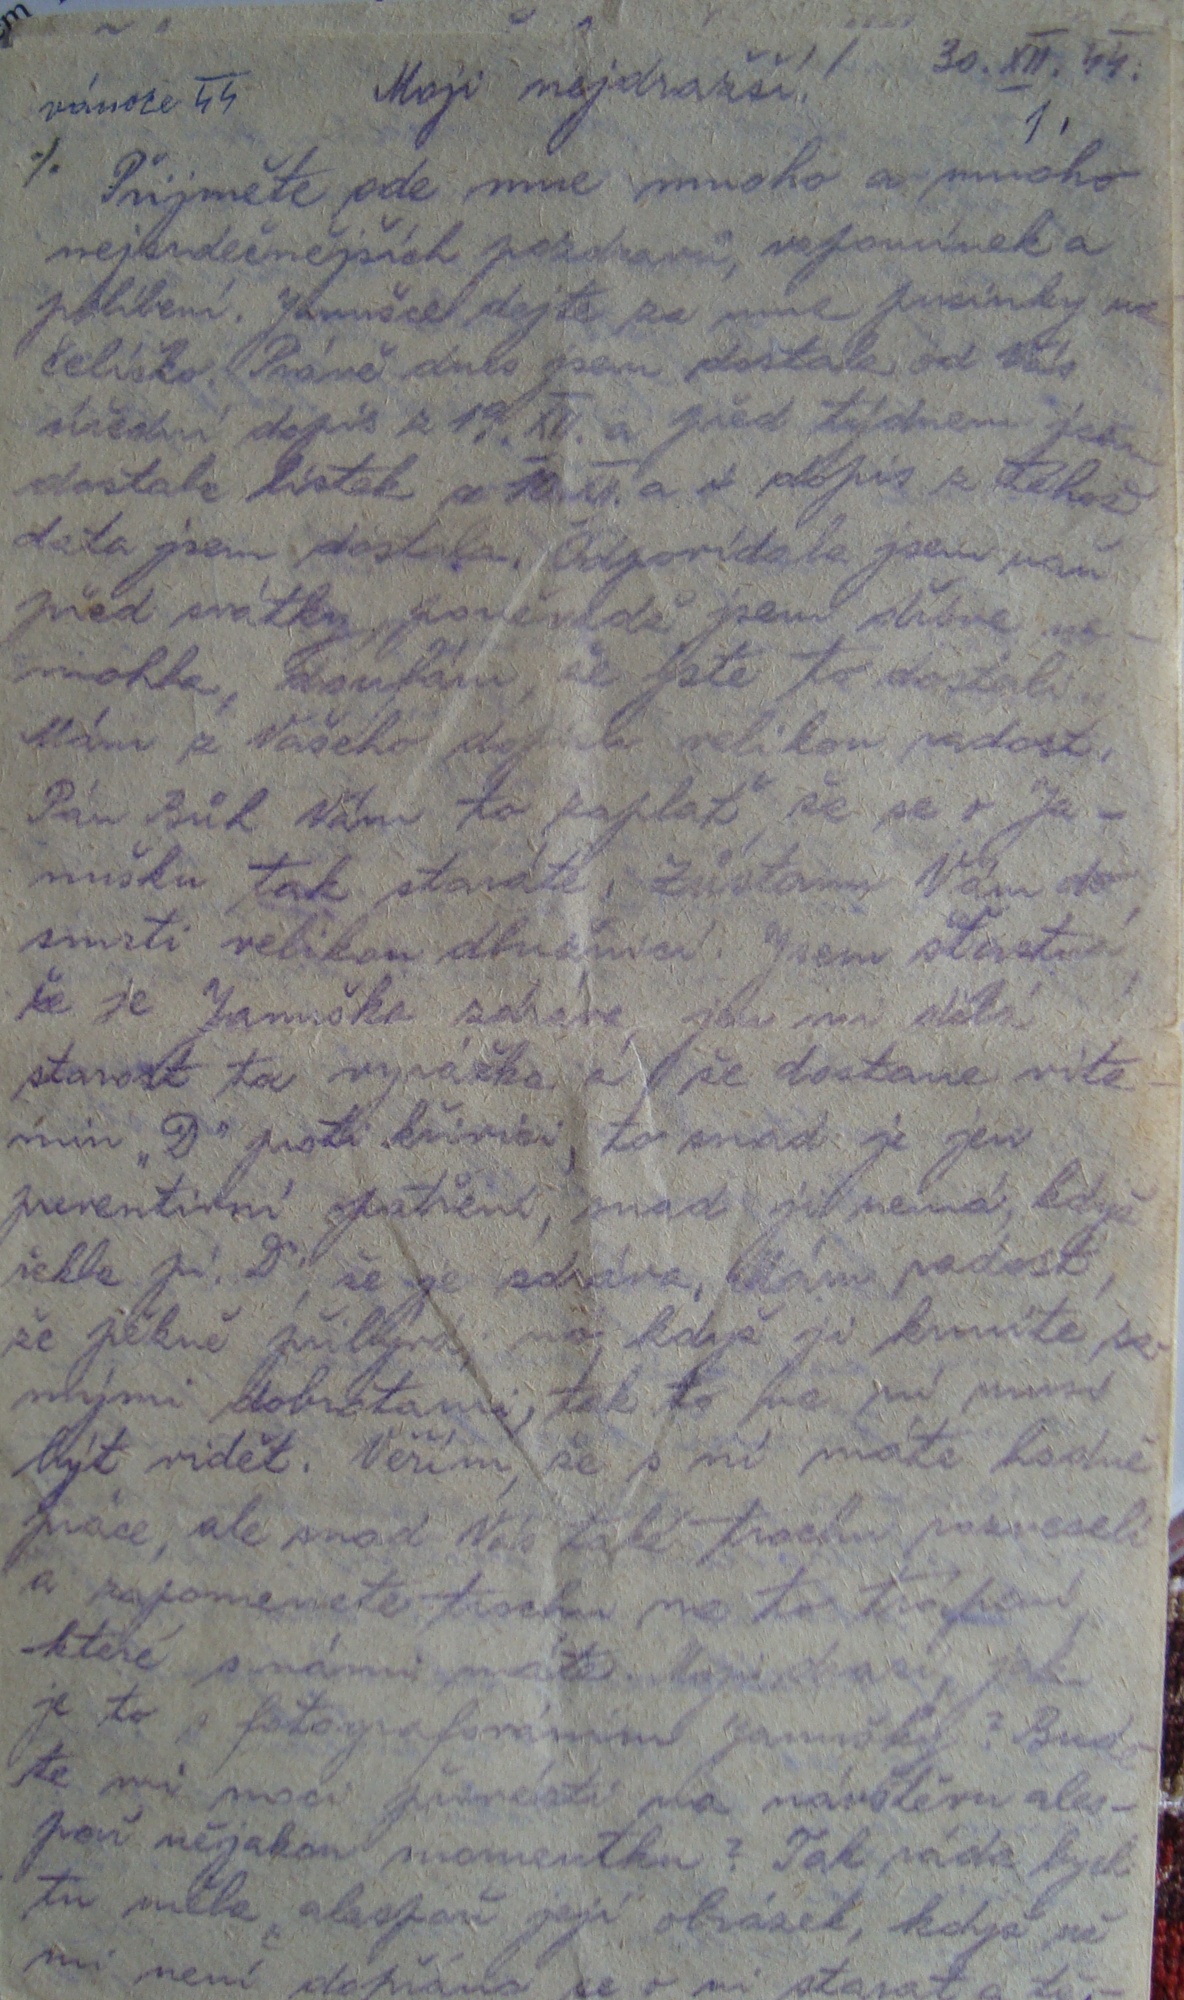 30. XII. 44.
vánoce 44
Moji nejdražší!
1.
Přijměte ode mne mnoho a mnoho
nejsrdečnějších pozdravů, vzpomínek a
políbení. Janušce dejte za mne pusinky na
čelíčko. Právě dnes jsem dostala od Vás
úřední dopis z 19. a před týdnem jsem
dostala lístek a dopis z téhož
data jsem dostala. Odpovídala jsem naň
před svátky, poněvadž jsem dříve ne-
mohla, doufám, že jste to dostali.
Mám z Vašeho dopisu velikou radost.
Pán Bůh Vám to zaplať, že se o Ja-
nušku tak staráte. Zůstanu Vám do
smrti velikou dlužnicí. Jsem šťastná,
že je Januška zdráva, jen mi dělá
starost ta vyrážka a že dostane vita-
min "D" proti křivici, to snad je jen
preventivní opatření, snad ji nemá, když
řekla pí. Dr, že je zdráva. Mám radost,
že pěkně přibývá, no, když ji krmíte sa-
mými dobrotami, tak to na ní musí
být vidět. Věřím, že s ní máte hodně
práce, ale snad Vás také trochu rozveselí
a zapomenete trochu na to trápení,
které s námi máte. Moji drazí, jak
je to s fotografováním Janušky? Bude-
te mi moci přinésti na návštěvu ales-
poň nějakou momentku? Tak ráda bych
tu měla alespoň její obrázek, když už
mi není dopřáno se o ni starat a těš-